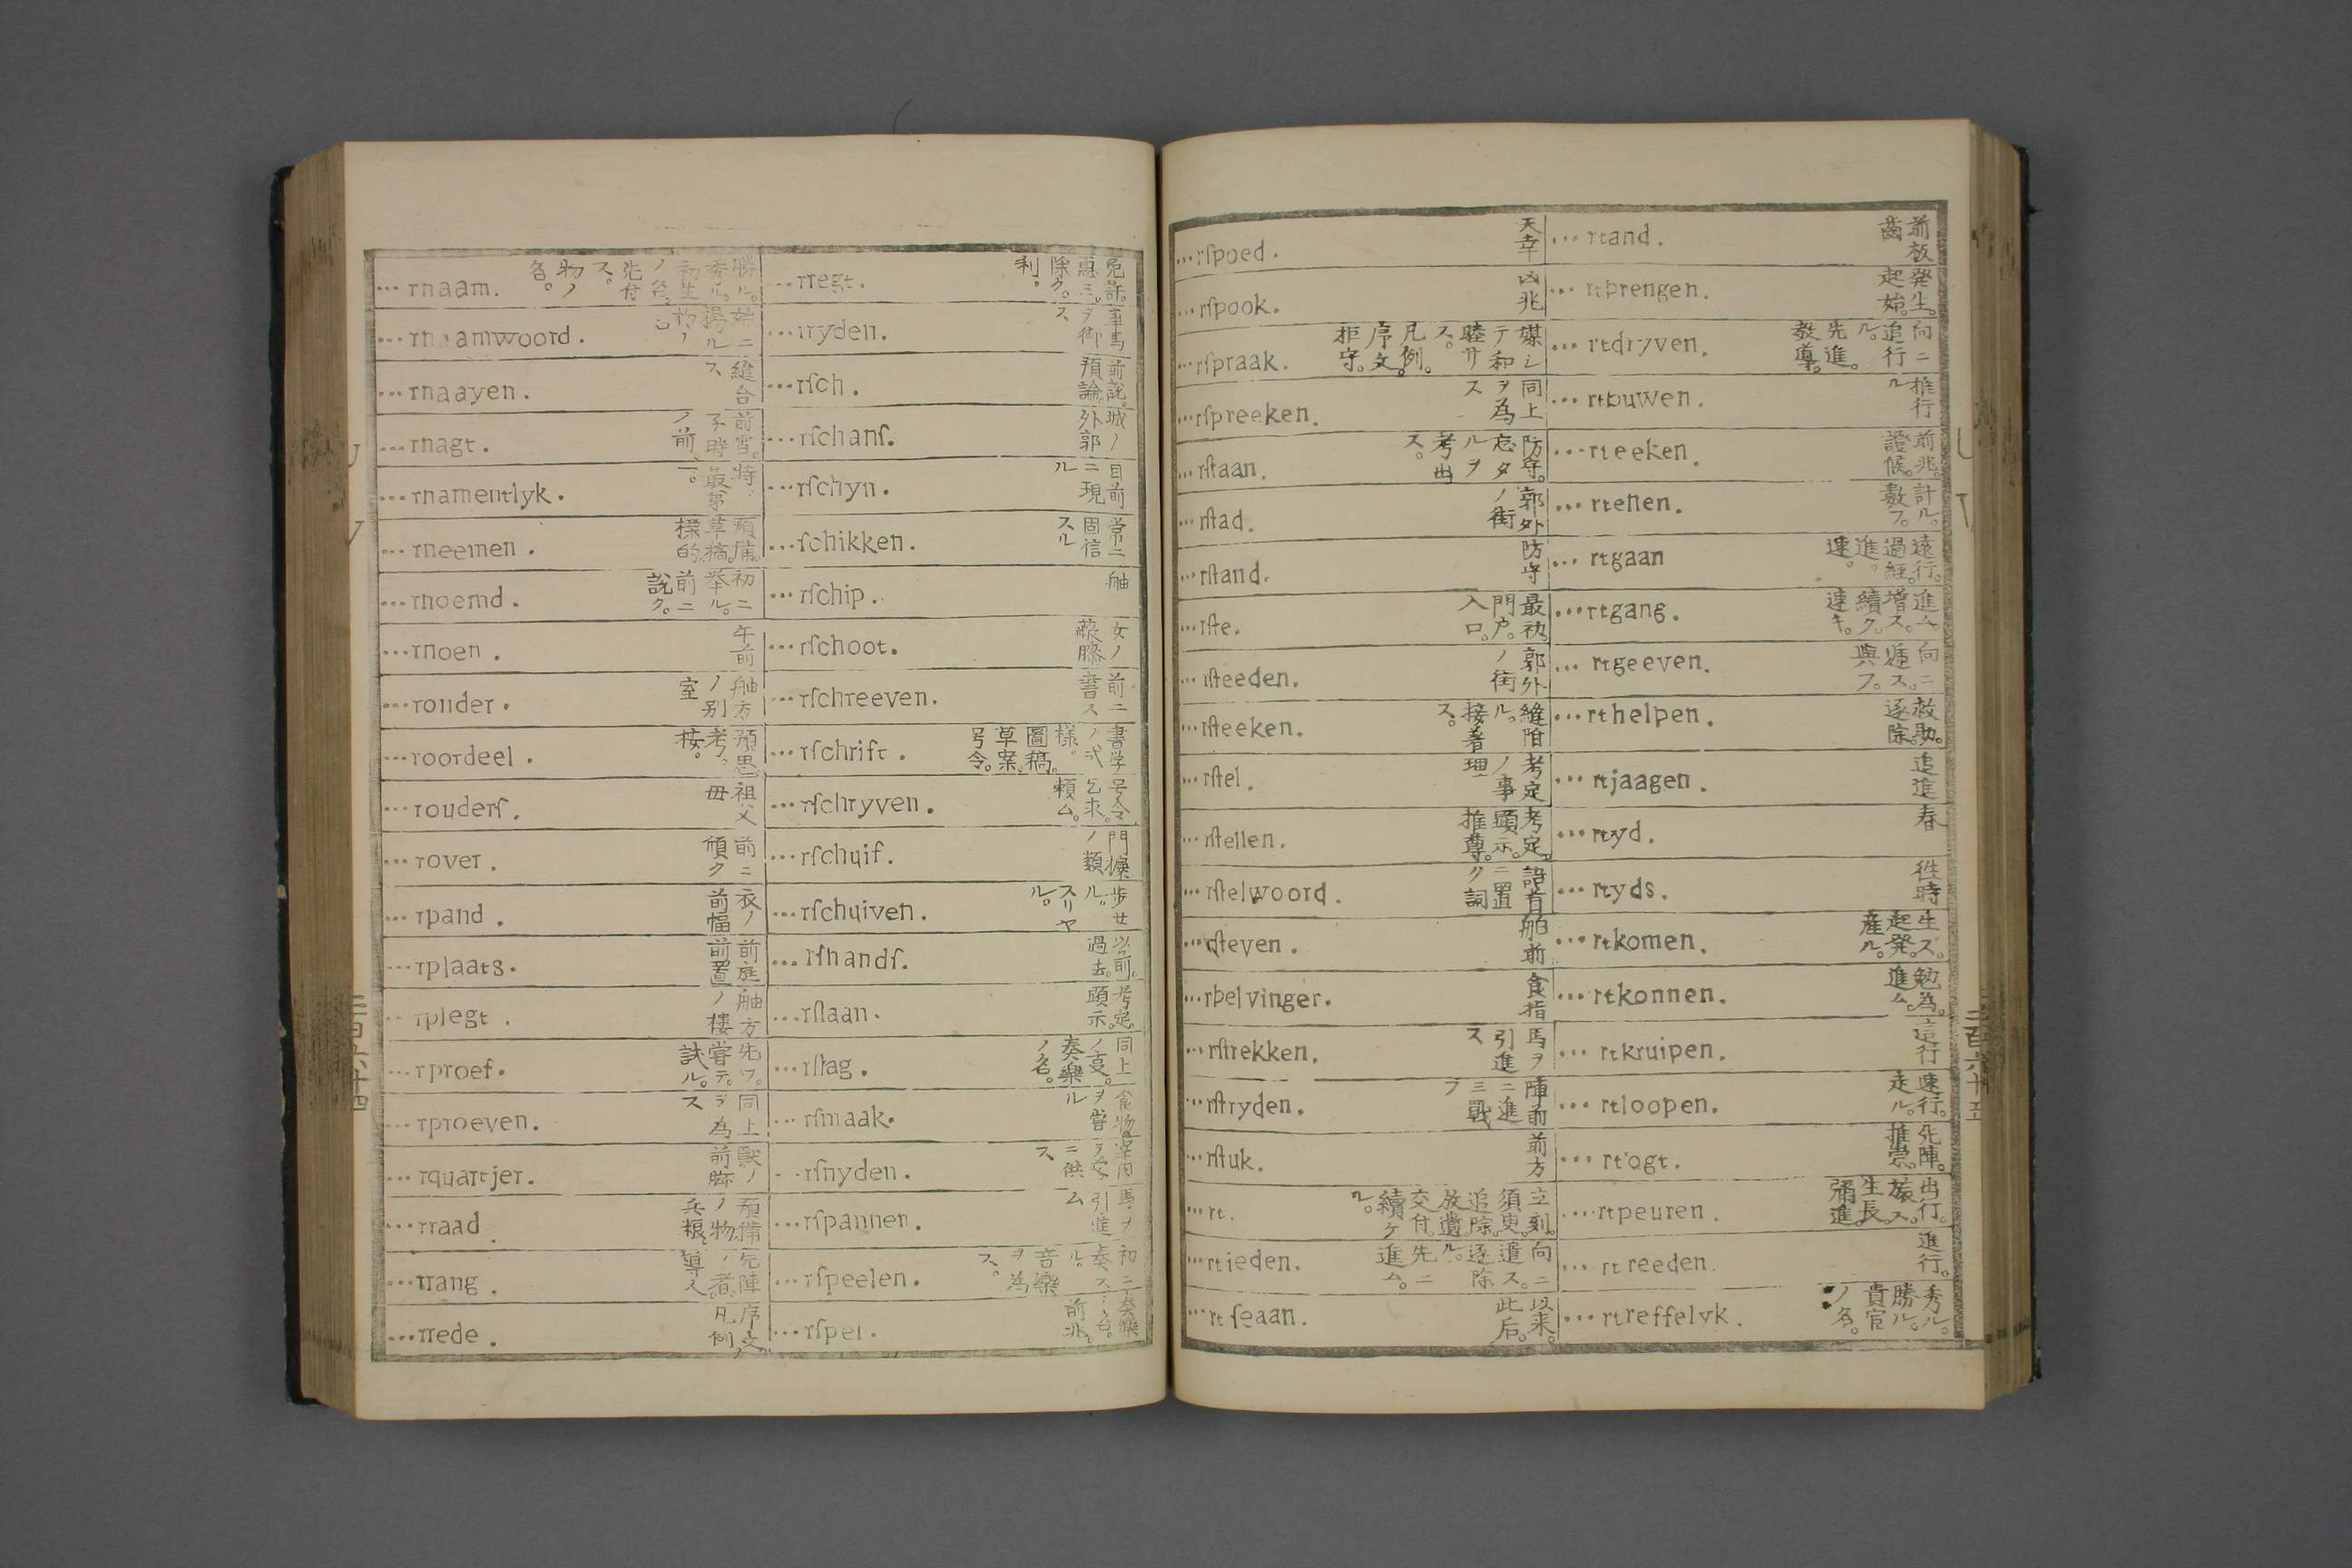 ...rnaam. 勝ル。秀ル。初生ノ名。先付ス。物ノ名。
...rnaamwoord.
...rnaayen. 縫合ス
...rnagt. 前宵。子時ノ前。
...rnamentlyk. 特ニ。最第一。
...rneemen. 預備。草稿。標的。
...rnoemd. 初ニ挙ル。前ニ説ク。
...rnoen. 午前
...ronder. 舳方ノ別室
...roordeel. 預思。考。按。
...rouderſ. 祖父母
...rover. 前ニ傾ク
...rpand. 衣ノ前幅
...rplaats. 前庭前置
...rplegt. 舳方ノ樓
...rproef. 先ヅ。嘗テ。試ル。
...rproeven. 同上ヲ為ス
...rquartjer. 獸ノ前脚
...rraad. 預備ノ物。兵粮。
...rrang. 先陣ノ者。導入
...rrede. 序文凡例
...rregt. 免許。惠ミ。除ク。利。
...rryden. 車馬ヲ御ス
...rſch. 前説。預論
...rſchanſ. 城ノ外郭
...rſchyn. 目前ニ現ル
...rſchikken. 常ニ固信スル
...rſchip. 舳
...rſchoot. 女ノ蔽膝
...rſchreeven. 前ニ書ス
...rſchrift. 書学ノ式様。圖稿。草案。号令。
...rſchryven. 号令。乞求。頼ム。
...rſchuif. 門攘ノ類
...rſchuiven. 歩セル。スリヤル。
...rſhandſ. 以前。過去。
...rſlaan. 考定。顕示。
...rſlag. 同上ノ叓。奏樂ノ名。
...rſmaak. 食物ヲ嘗ル
...rſnyden.
...rſpannen. 馬ヲ引進ム
...rſpeelen. 初ニ奏スル。音樂ヲ為ス。
...rſpel.
...rſpoed. 天幸
...rſpook. 凶兆
...rſpraak. 媒シテ和睦サス。凡例。序文。拒守。
...rſpreeken. 同上ヲ為ス
...rſtaan. 防守。忘タルヲ考出ス。
...rſtad. 郭外ノ街
...rſtand. 防守
...rſte. 最初。門戸。入口。
...rſteeden. 郭外ノ街
...rſteeken. 縫陷ル。接着ス。
...rſtel. 考定ノ事理
...rſtellen. 考定。顕示。推尊。
...rſtelwoord. 語首ニ置ク詞
...rſteven. 舶前
...rbelvinger. 食指
...rſtrekken. 馬ヲ引進ス
...rſtryden. 陣前ニ進ミ戰フ
...rſtuk. 前方
...rt. 立刻。須臾。追除。放遺。交付。續ケル。
...rtieden. 向ニ遣ス。逐除ル。先ニ進ム。
...rtſeaan. 以来。此后。
...rtand. 前板齒
...rtbrengen. 発生。起始。
...rtdryven. 向ニ追行ル。先進。教導。
...rtbuwen. 推行ル
...rteeken. 前兆。證候。
...rtellen. 計ル。數フ。
...rtgaan 遠行。過經。進。連。
...rtgang. 進ム。増ス。續ク。連キ。
...rtgeeven. 向ニ遞ス。與フ。
...rthelpen. 救助。逐除。
...rtjaagen. 追進
...rtyd. 春
...rtyds. 徃時
...rtkomen. 生ズ。起発。産ル。
...rtkonnen. 勉為。進ム。
...rtkruipen. 這行
...rtloopen. 速行。走ル。
...rtogt. 先陣。推崇。
...rtpeuren. 出行。旅ス。生長。彌進。
...rtreeden. 進行。
...rtreffelyk. 秀ル。勝ル。貴官ノ名。
二百六十五